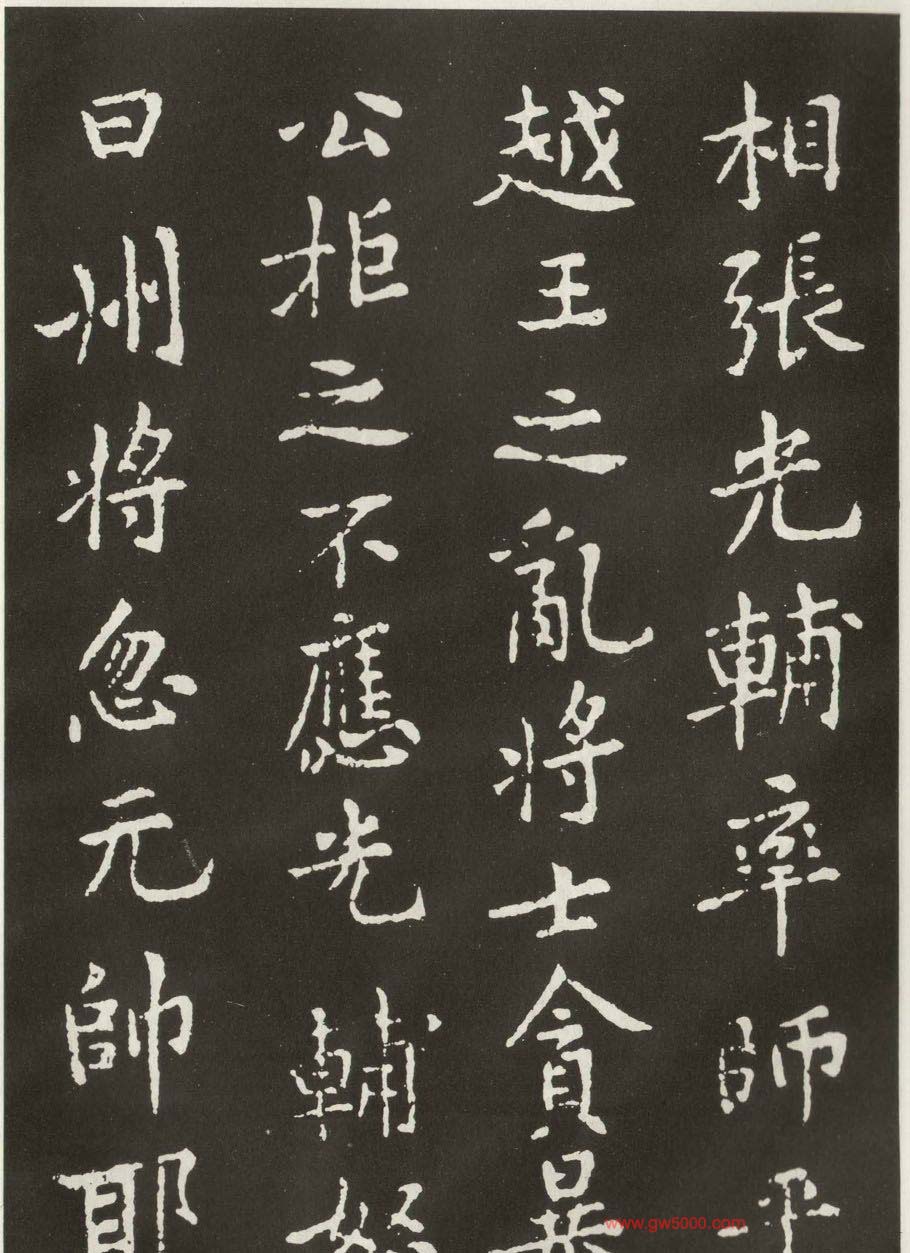 相張光輔率師平
越王之亂將士貪暴
公拒之不應光輔怒
曰州將忽元帥耶
www.gw5000.com